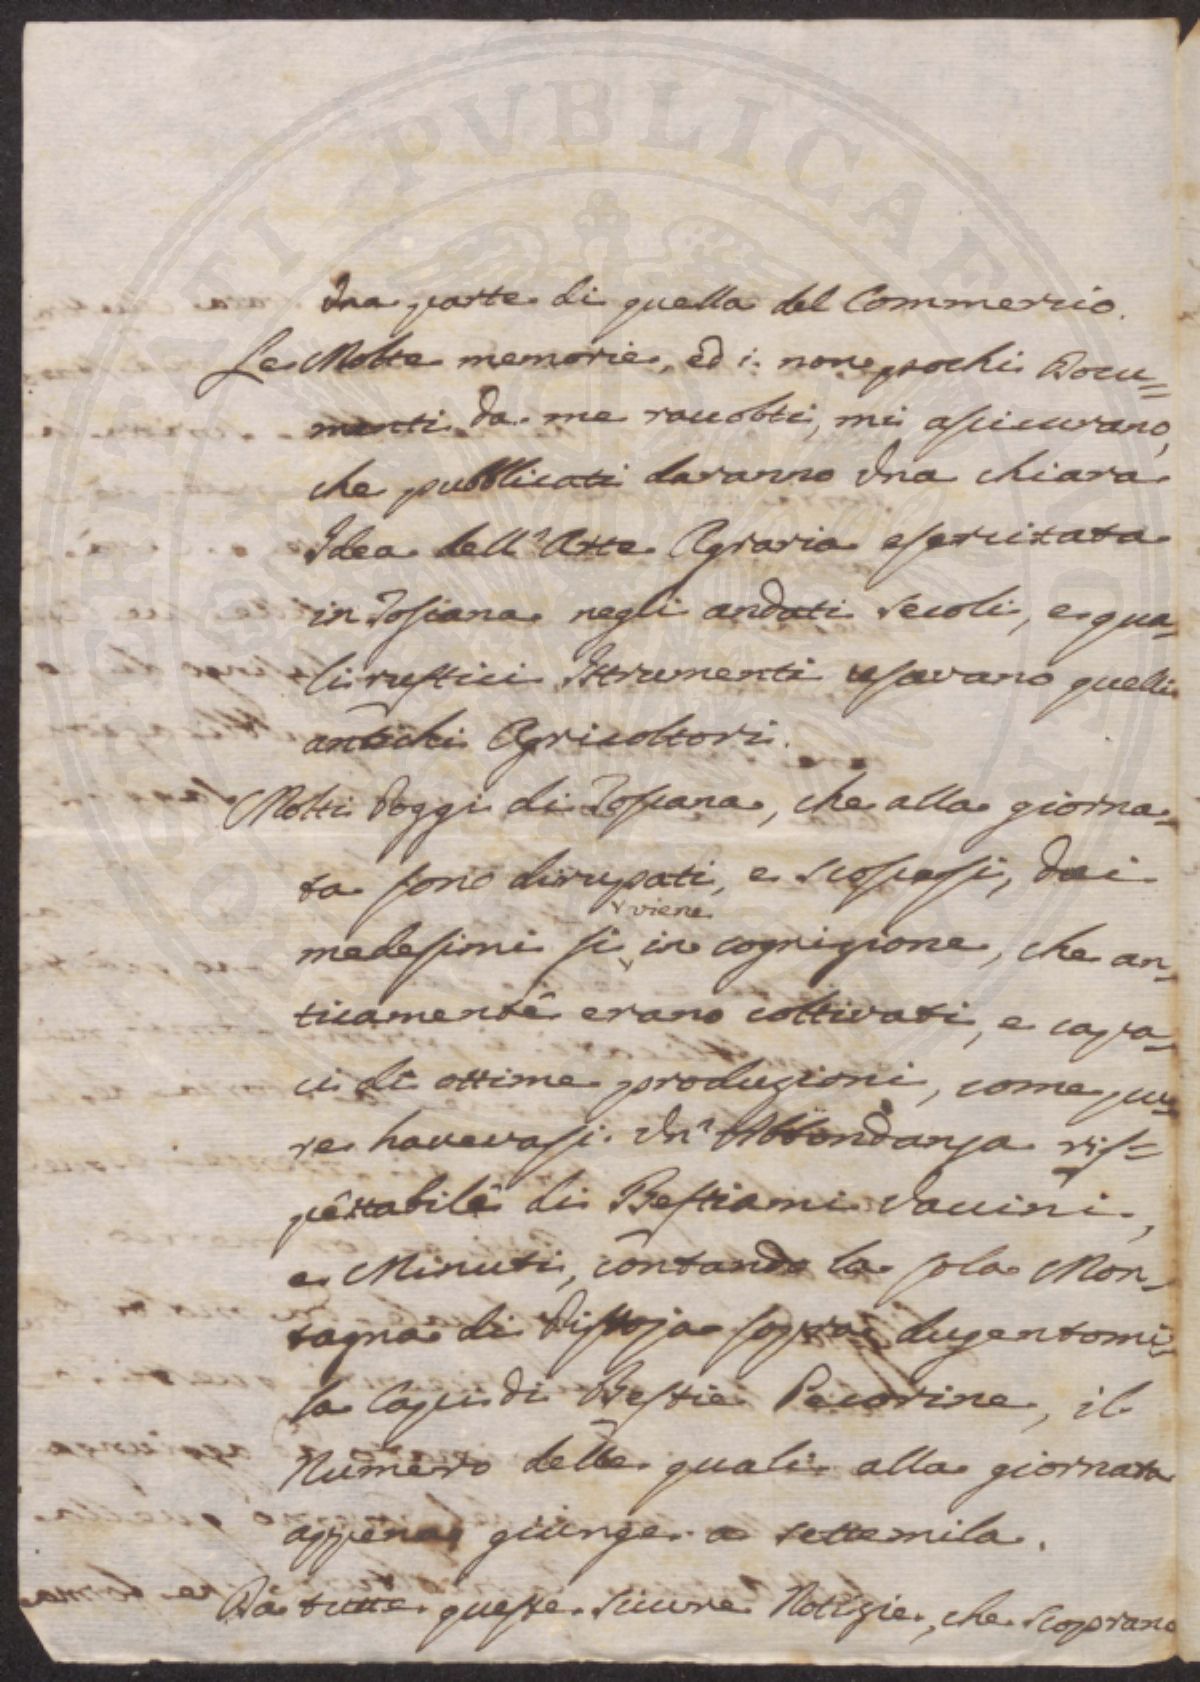 Una parte di quella del Commercio.
Le Molte memorie, ed i non pochi Docu=
menti da me raccolti, mi assicurano,
che pubblicati daranno Una chiara
Idea dell'Arte Agraria esercitata
in Toscana negli andati Secoli, e qua=
li rustici Istrumenti usavano quelli
antichi Agricoltori.
Molti Poggi di Toscana, che alla giorna=
ta sono dirupati, e scoscesi, dei
viene
medesimi si in cognizione, che an=
ticamente erano coltivati, e capa=
ci di ottime produzioni, come pu=
re havevasi Un'Abbondanza ris=
pettabile di Bestiami Vaccini,
e Minuti, contando la sola Mon=
tagna di Pistoja sopra dugentomi=
la Capi di Bestie Pecorine, il
Numero delle quali alla giornata
appena giunge a settemila.
Da tutte queste sicure Notizie, che scoprano
PUBLICAE